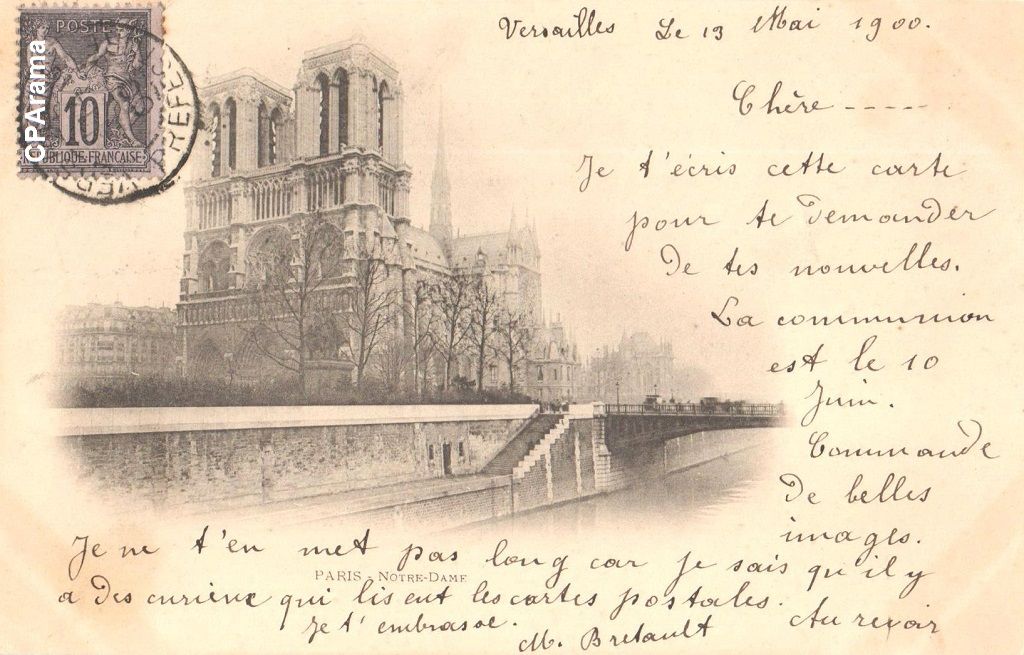 Versailles Le 13 Mai 1900.
Chère -----
Je t'écris cette carte
pour te demander
de tes nouvelles.
La communion
est le 10
Juin.
Commande
de belles
images.
Je ne t'en met pas long car je sais qu'il y
a des curieux qui lisent les cartes postales.
Je t'embrasse.
Au revoir
M. Bretault
PARIS - NOTRE-DAME
POSTE
10
RÉPUBLIQUE FRANÇAISE
CPArama